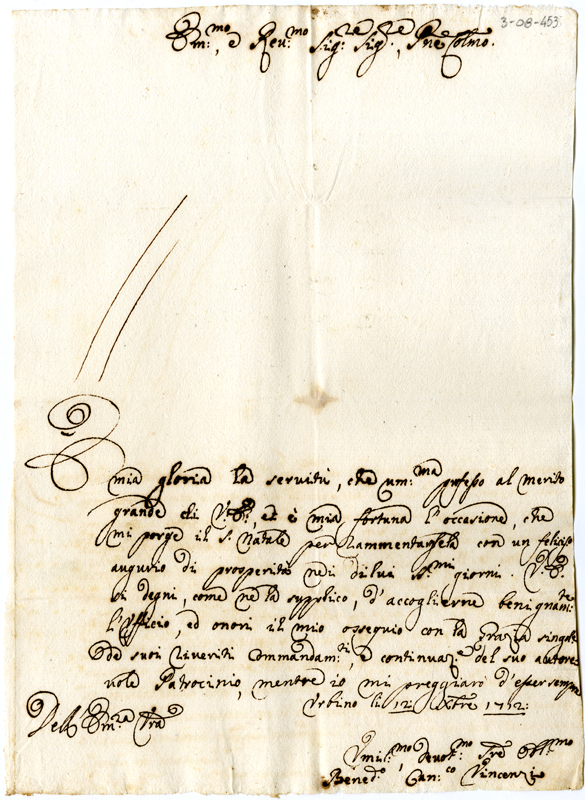 3-08-453
Em:mo, e Reu:mo Sig:re Sig:re, Pne Colmo.
È mia gloria la seruitù, che um:ma professo al merito
grande di V:E:, ed è mia fortuna l'occasione, che
mi porge il S. Natale per rammentarsela con un felicis:
augurio di prosperità nei di lui SS:mi giorni. V:E:
si degni, come ne la supplico, d'accoglierne benignam:te
l'Offficio, ed onori il mio ossequio con la grazia singol:
de suoi riueriti Commandam:ti, e continuaz:e del suo autore
uole Patrocinio, mentre io mi preggiarò d'esser sempre
Urbino li 12: Xbre 1712:
Dell' Em:za Vra
Umil:mo, deuot:mo Sre Obl:mo
Bened:o Can:co Vincenzi